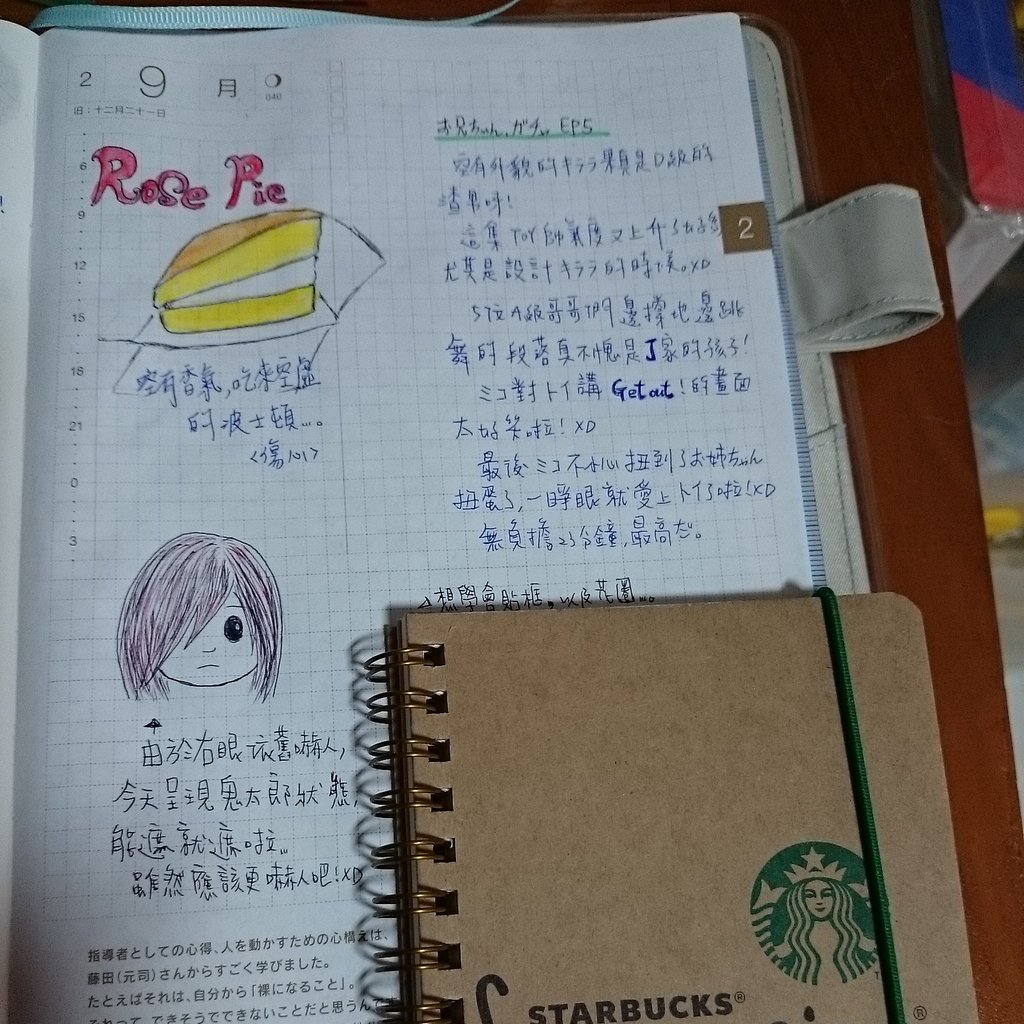 2 9 月
040
旧:十二月二十一日
6
9
12
15
18
21
0
3
Rose Pie
空有香氣,吃來空虛
的波士頓...。
<傷心>
お兄ちゃん、ガチャ EP5
空有外貌的キララ果真是D級的
渣男呀!
這集TOY帥氣度又上升了好多
尤其是設計キララ的時候。XD
5位A級哥哥們邊撐地邊跳
舞的段落真不愧是J家的孩子!
ミコ對トイ講Get out!的畫面
太好笑啦!XD
最後ミコ不小心扭到了お姉ちゃん
扭蛋了,一睜眼就愛上トイ了啦!XD
無負擔23分鐘,最高だ。
想學會貼框,以及花圈...。
2
由於右眼依舊嚇人,
今天呈現鬼太郎狀態,
能遮就遮啦...
雖然應該更嚇人吧!XD
指導者としての心得、人を動かすための心構えは、
藤田(元司)さんからすごく学びました。
たとえばそれは、自分から「裸になること」。
それって、できそうでできないことだと思うんです
STARBUCKS®